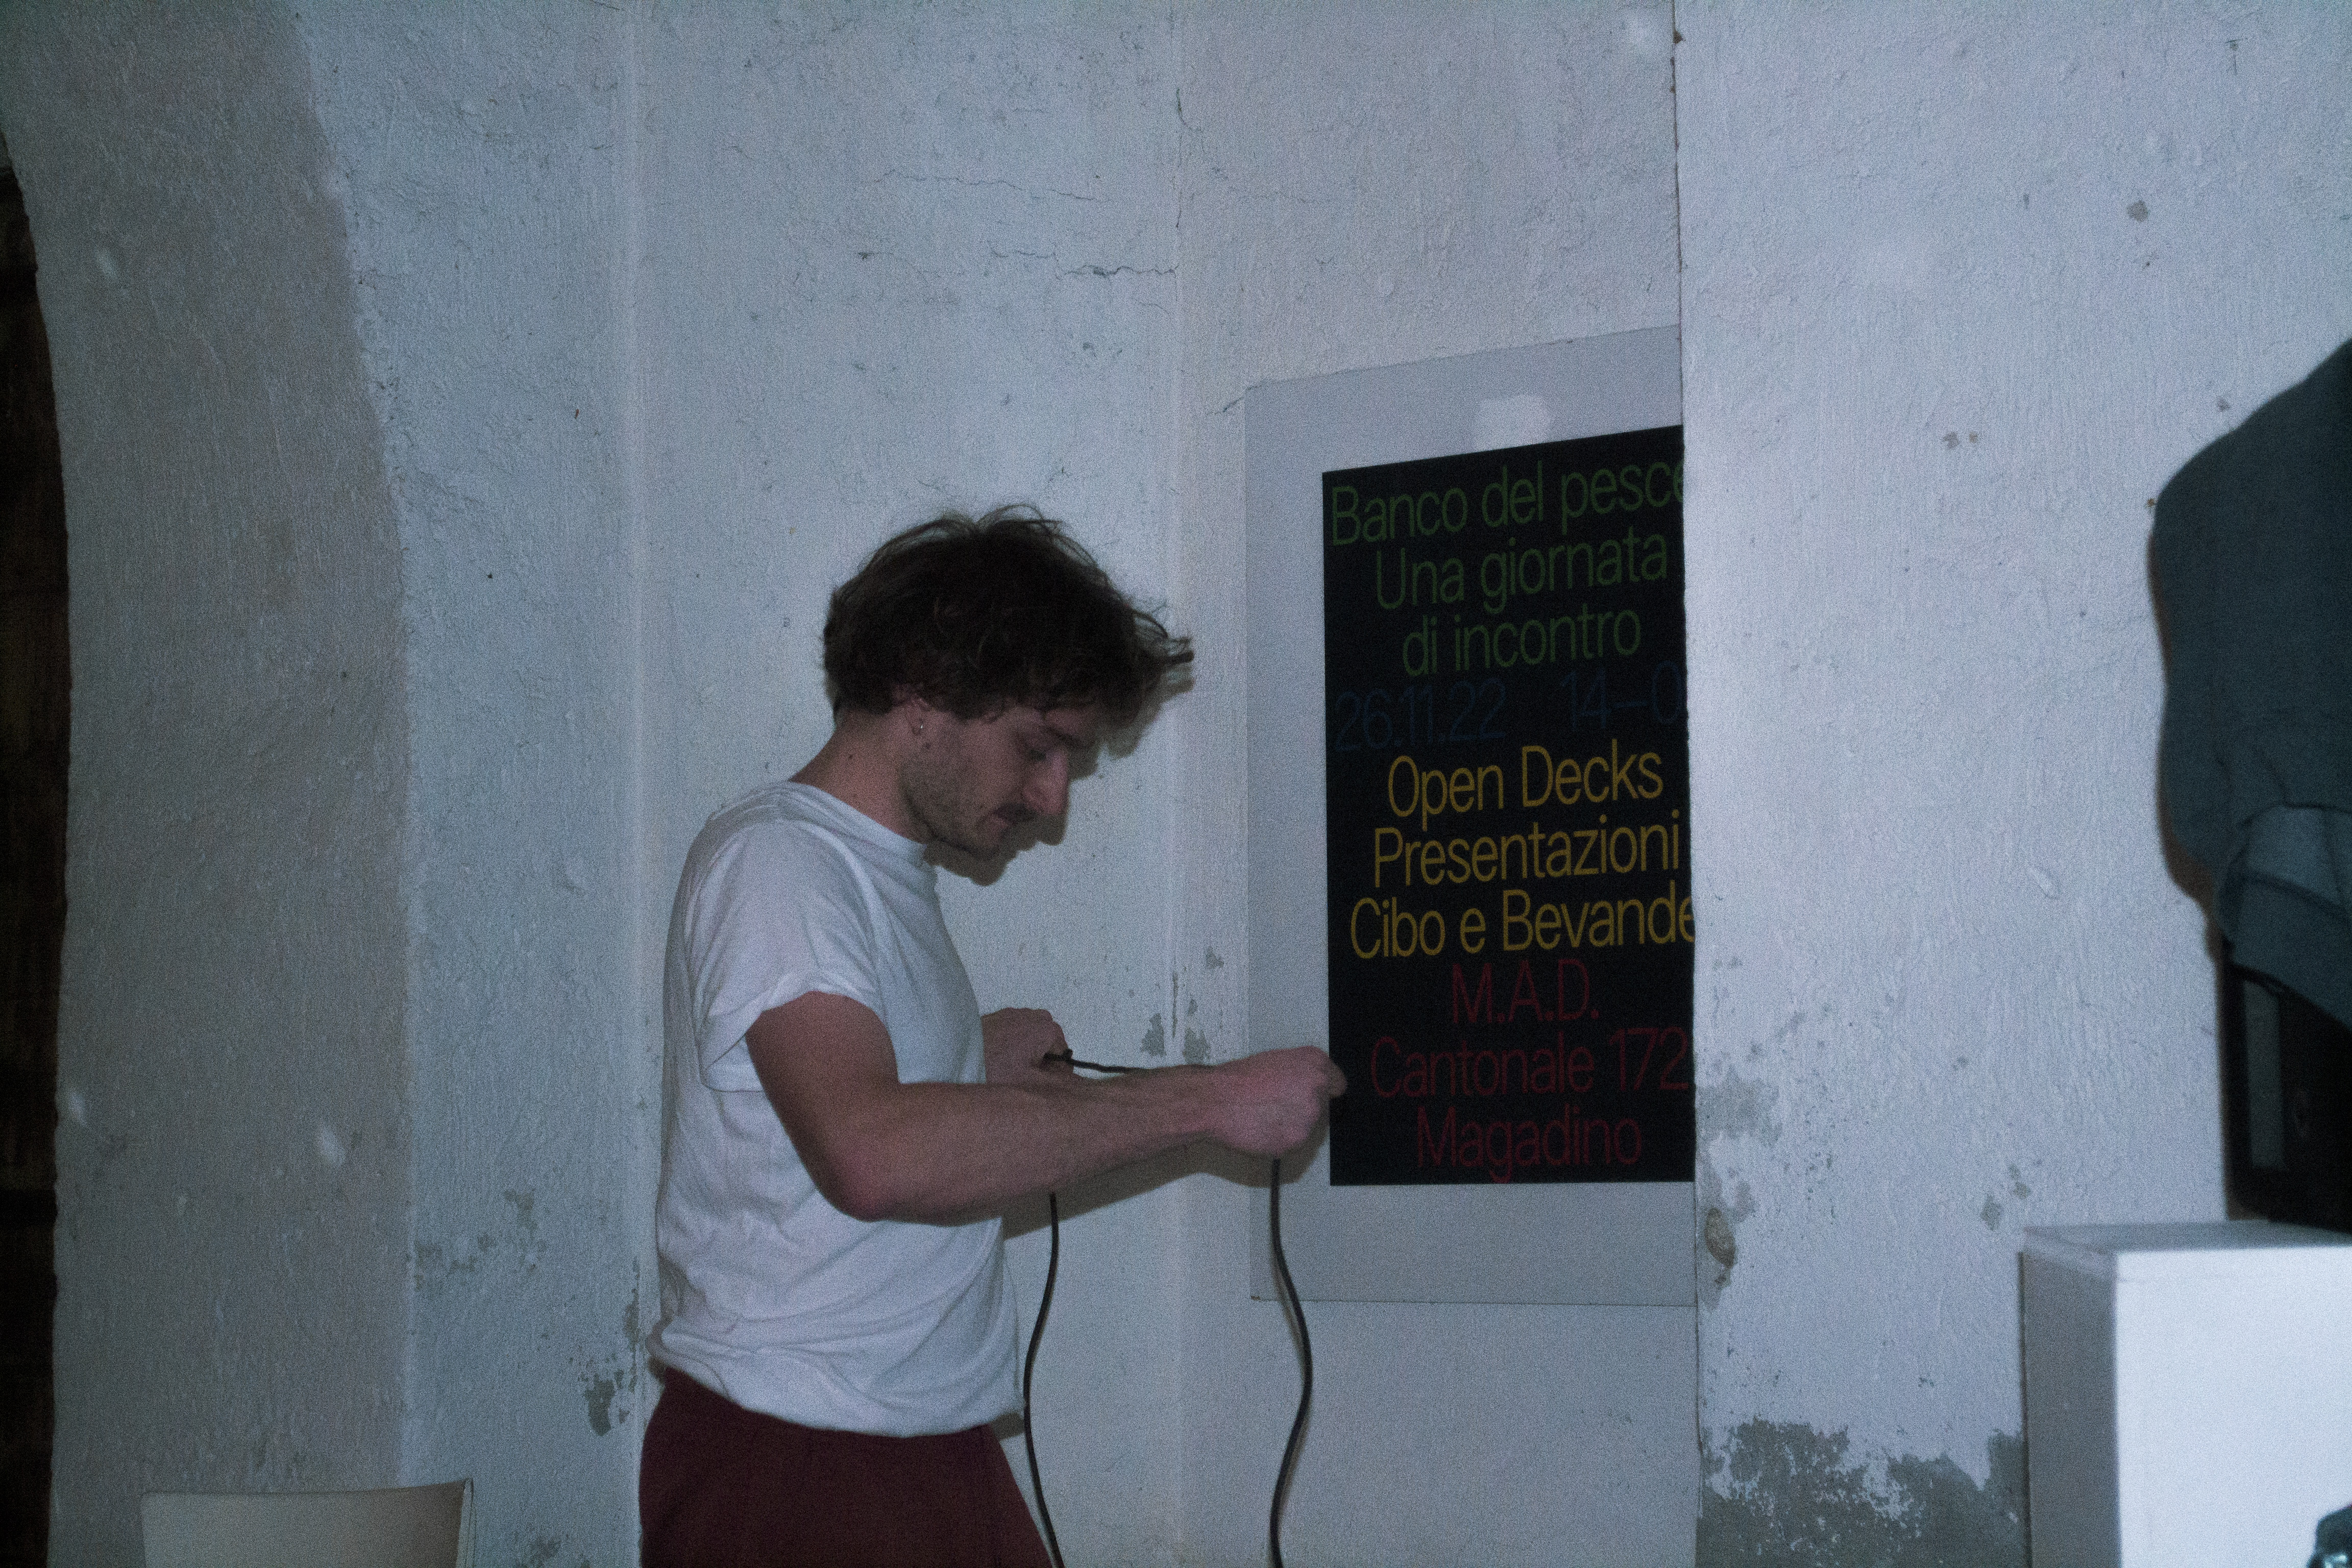 Banco del pesce
Una giornata
di incontro
26.11.22 14–0
Open Decks
Presentazioni
Cibo e Bevande
M.A.D.
Cantonale 172
Magadino